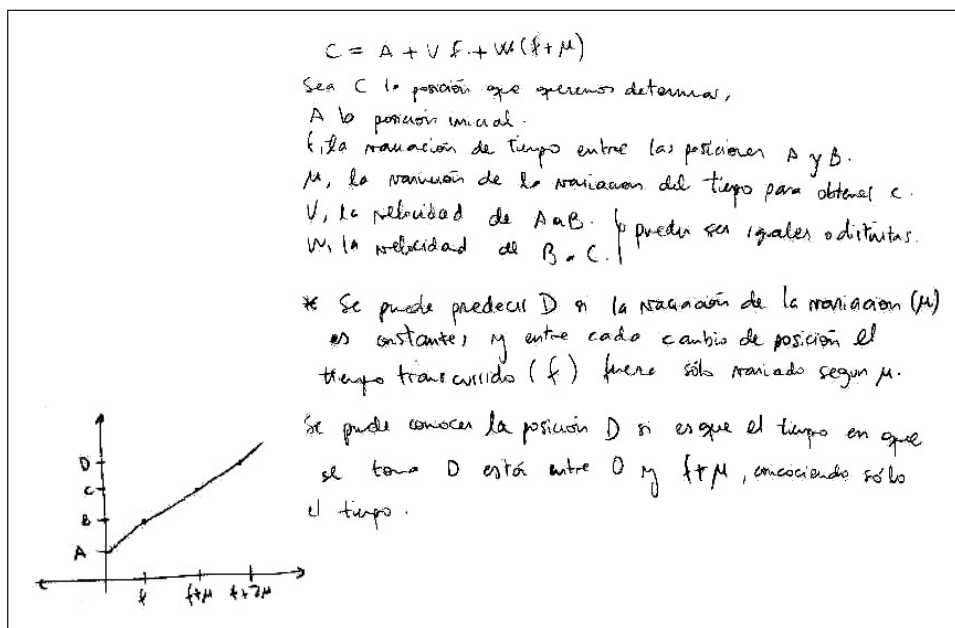 C = A + V f + W (f + μ)
Sea C la posición que queremos determinar,
A la posición inicial.
f, la variación de tiempo entre las posiciones A y B.
μ, la variación de la variacion del tiempo para obtener C.
V, la velocidad de A a B.
W, la velocidad de B a C.
pueden ser iguales o distintas.
* Se puede predecir D si la variación de la variación (μ)
es constante, y entre cada cambio de posición el
tiempo transcurrido (f) fuere sólo variado segun μ.
Se puede conocer la posición D si es que el tiempo en que
se toma D está entre 0 y f+μ, conociendo sólo
el tiempo.
D
C
B
A
f f+μ f+2μ